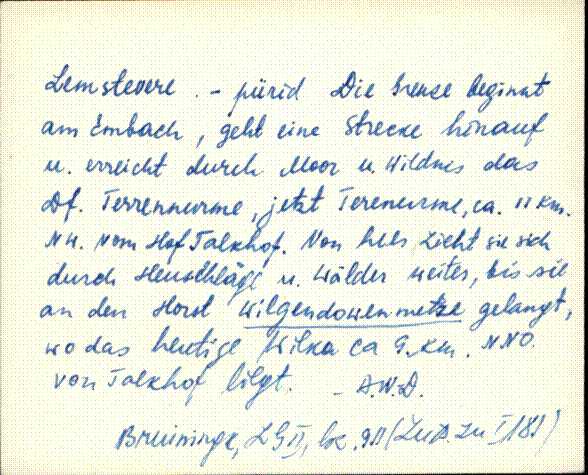 Lemstevere. - piirid Die Grenze beginnt
am Embach, geht eine Strecke hinauf
u. erreicht durch Moor u. Wildnis das
Df. Terrennurme, jetzt Terenurme, ca. 11 km.
NW. vom Hof Talkhof. Von hier zieht sie sich
durch Heuschläge u. Wälder weiter, bis sie
an den Horst Wilgendowenmetze gelangt,
wo das heutige Wilka ca 9. km. NNO.
von Talkhof liegt. - A.W.D.
Bruininge, LG II,